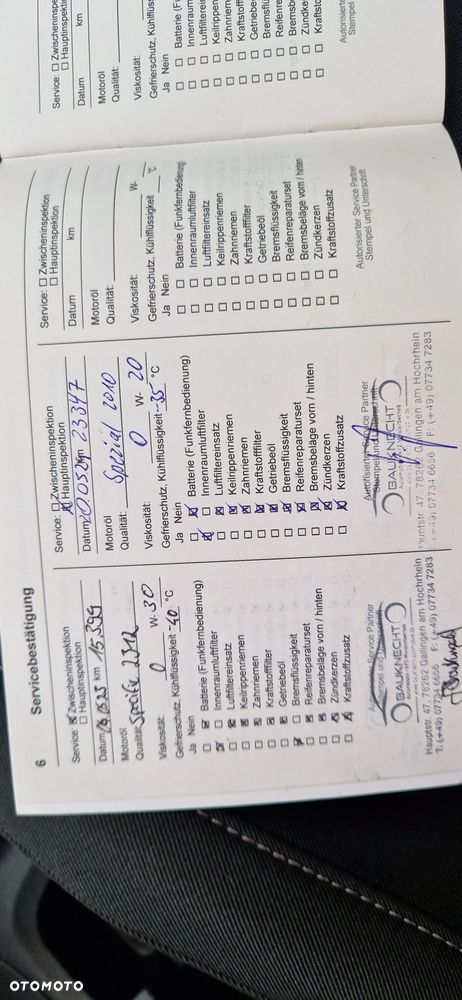 6
Servicebestätigung
Service: ☒ Zwischeninspektion
☐ Hauptinspektion
km 15.399
Motoröl
Qualität:
Viskosität: 0 W- 30
Gefrierschutz, Kühlflüssigkeit -40 °C
Ja Nein
☐ ☒ Batterie (Funkfernbedienung)
☒ ☐ Innenraumluftfilter
☐ ☒ Luftfiltereinsatz
☐ ☒ Keilrippenriemen
☐ ☒ Zahnriemen
☐ ☒ Kraftstofffilter
☐ ☒ Getriebeöl
☒ ☐ Bremsflüssigkeit
☐ ☒ Reifenreparaturset
☐ ☒ Bremsbeläge vorn / hinten
☐ ☒ Zündkerzen
☐ ☒ Kraftstoffzusatz
Autorisierter Service Partner
Stempel und Unterschrift
BAUKNECHT
Hauptstr. 47, 78262 Gailingen am Hochrhein
T: (+49) 07734 6656 F: (+49) 07734 7283
Service: ☐ Zwischeninspektion
☒ Hauptinspektion
Datum 200524 km 23347
Motoröl
Qualität: Spezial 2010
Viskosität: 0 W- 20
Gefrierschutz, Kühlflüssigkeit -35 °C
Ja Nein
☐ ☒ Batterie (Funkfernbedienung)
☒ ☐ Innenraumluftfilter
☐ ☒ Luftfiltereinsatz
☐ ☒ Keilrippenriemen
☐ ☒ Zahnriemen
☐ ☒ Kraftstofffilter
☐ ☒ Getriebeöl
☐ ☒ Bremsflüssigkeit
☐ ☒ Reifenreparaturset
☐ ☒ Bremsbeläge vorn / hinten
☐ ☒ Zündkerzen
☐ ☒ Kraftstoffzusatz
Autorisierter Service Partner
Stempel und Unterschrift
BAUKNECHT
Hauptstr. 47, 78262 Gailingen am Hochrhein
T: (+49) 07734 6656 F: (+49) 07734 7283
Service: ☐ Zwischeninspektion
☐ Hauptinspektion
Datum km
Motoröl
Qualität:
Viskosität: W-
Gefrierschutz, Kühlflüssigkeit °C
Ja Nein
☐ ☐ Batterie (Funkfernbedienung)
☐ ☐ Innenraumluftfilter
☐ ☐ Luftfiltereinsatz
☐ ☐ Keilrippenriemen
☐ ☐ Zahnriemen
☐ ☐ Kraftstofffilter
☐ ☐ Getriebeöl
☐ ☐ Bremsflüssigkeit
☐ ☐ Reifenreparaturset
☐ ☐ Bremsbeläge vorn / hinten
☐ ☐ Zündkerzen
☐ ☐ Kraftstoffzusatz
Autorisierter Service Partner
Stempel und Unterschrift
Service: ☐ Zwischeninspe
☐ Hauptinspek
Datum km
Motoröl
Qualität:
Viskosität:
Gefrierschutz, Kühlflüss
Ja Nein
☐ ☐ Batterie (Fu
☐ ☐ Innenraum
☐ ☐ Luftfilterein
☐ ☐ Keilrippen
☐ ☐ Zahnrieme
☐ ☐ Kraftstoff
☐ ☐ Getriebeö
☐ ☐ Bremsflü
☐ ☐ Reifenre
☐ ☐ Bremsb
☐ ☐ Zündke
☐ ☐ Kraftst
Autorisierte
Stempel u
OTOMOTO